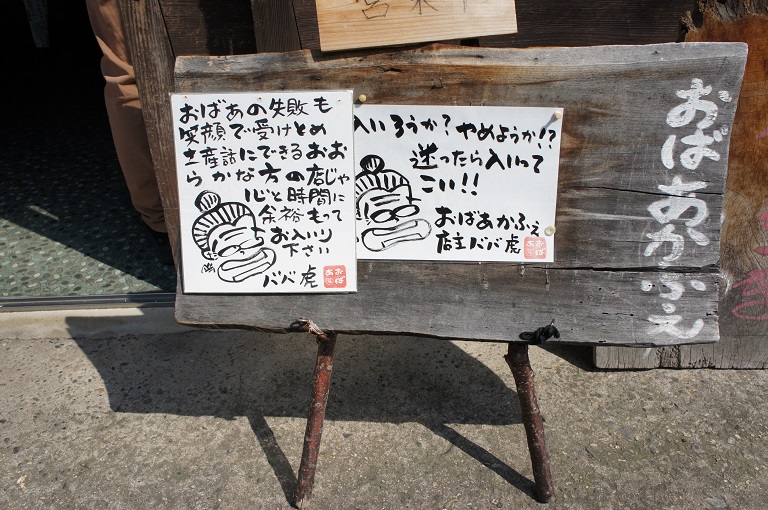 おばあの失敗も
笑顔で受けとめ
土産話にできるおお
らかな方の店じゃ
心と時間に
余裕もって
お入り
下さい
ババ虎
おば
あ
入いろうか？やめようか!?
迷ったら入いって
こい!!
おばあかふぇ
店主ババ虎
おば
あ
おばあかふぇ